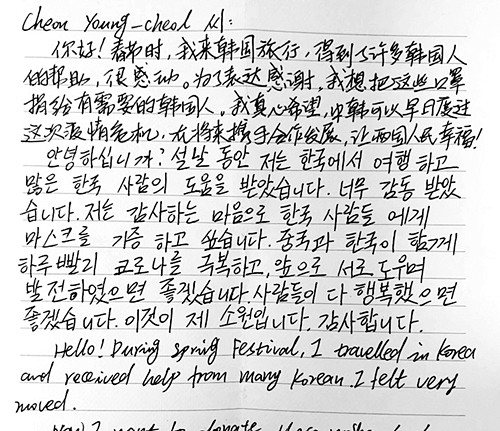 Cheon Young-cheol 씨:
你好！春节时，我来韩国旅行，得到了许多韩国人
的帮助，很感动。为了表达感谢，我想把这些口罩
捐给有需要的韩国人。我真心希望，中韩可以早日度过
这次疫情危机，在将来携手合作发展，让两国人民幸福！
안녕하십니까? 설날 동안 저는 한국에서 여행 하고
많은 한국 사람의 도움을 받았습니다. 너무 감동 받았
습니다. 저는 감사하는 마음으로 한국 사람들 에게
마스크를 기증 하고 싶습니다. 중국과 한국이 함께
하루 빨리 코로나를 극복하고, 앞으로 서로 도우며
발전하였으면 좋겠습니다. 사람들이 다 행복했으면
좋겠습니다. 이것이 제 소원입니다. 감사합니다.
Hello! During spring Festival, I travelled in Korea
and received help from many Korean. I felt very
moved.
Now I want to donate these